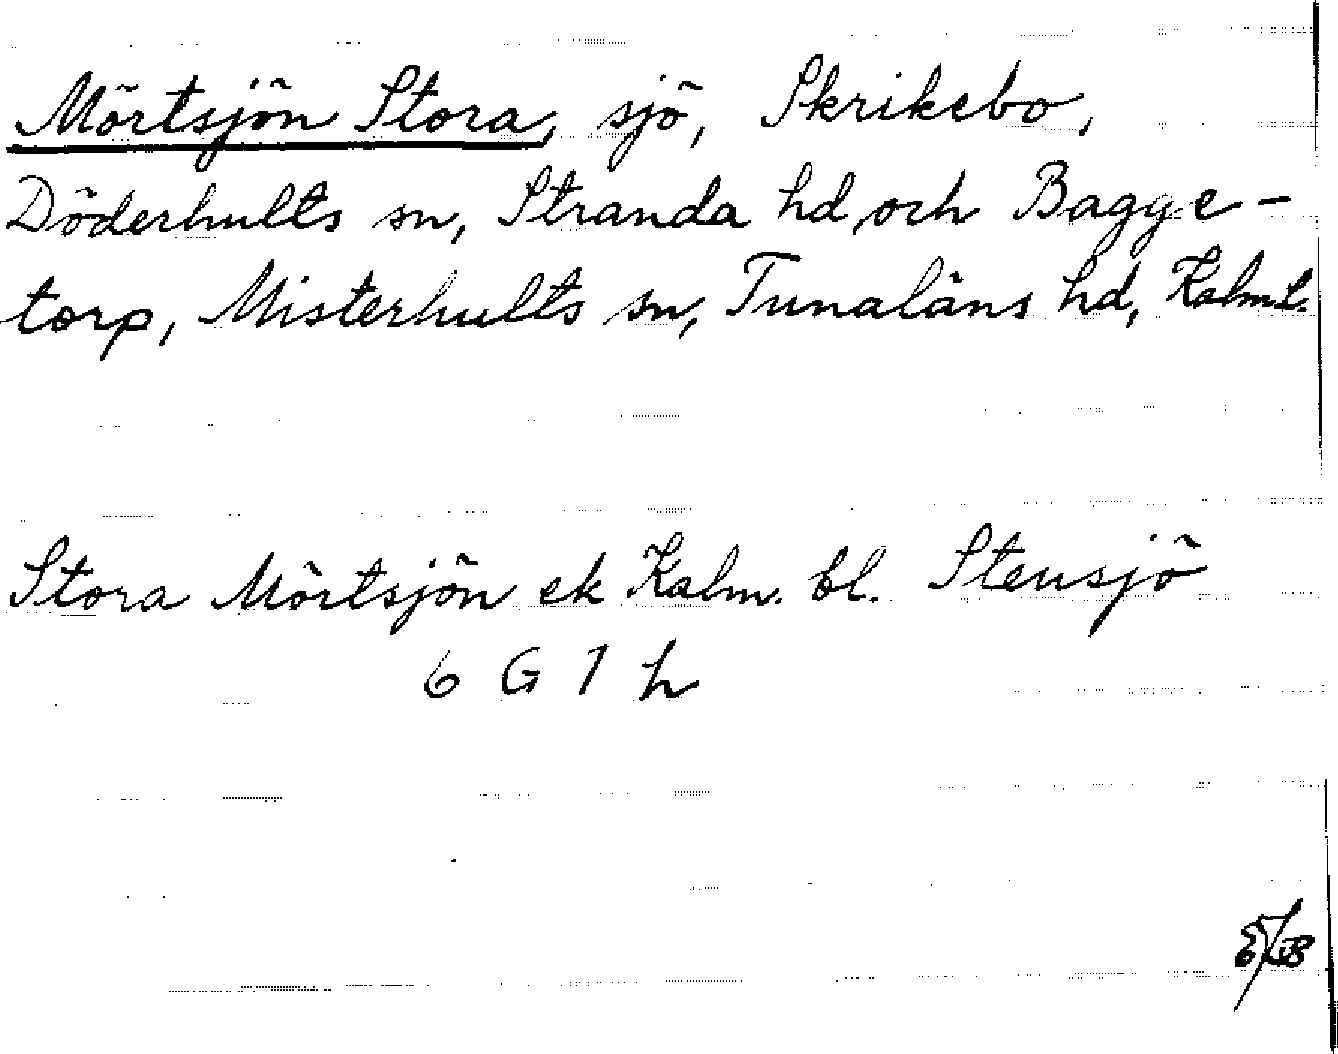 Mörtsjön Stora, sjö, Skrikebo,
Döderhults sn, Stranda hd, och Bagge-
torp, Misterhults sn, Tunaläns hd, Kalm.l.
Stora Mörtsjön ek Kalm. bl. Stensjö
6 G 1 h